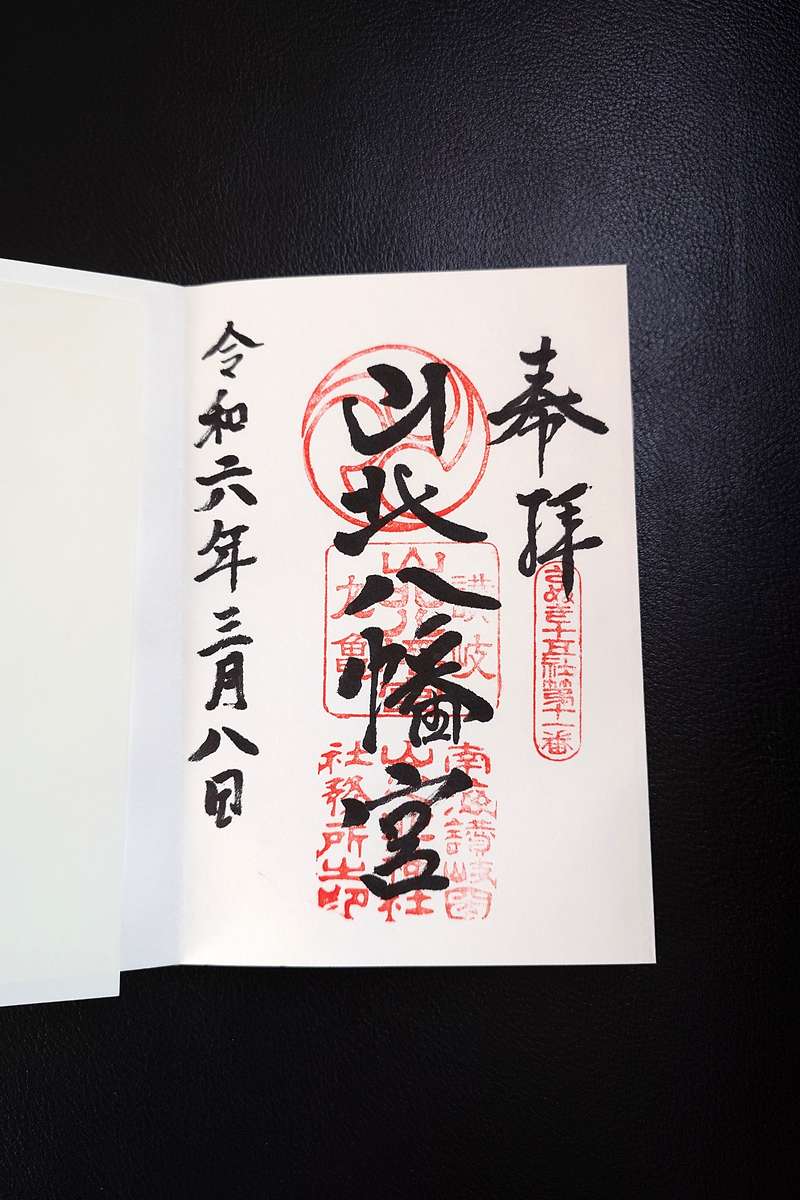 奉拝
さぬき十五社第十一番
山北八幡宮
讃岐
丸亀
社務所之印
令和六年三月八日